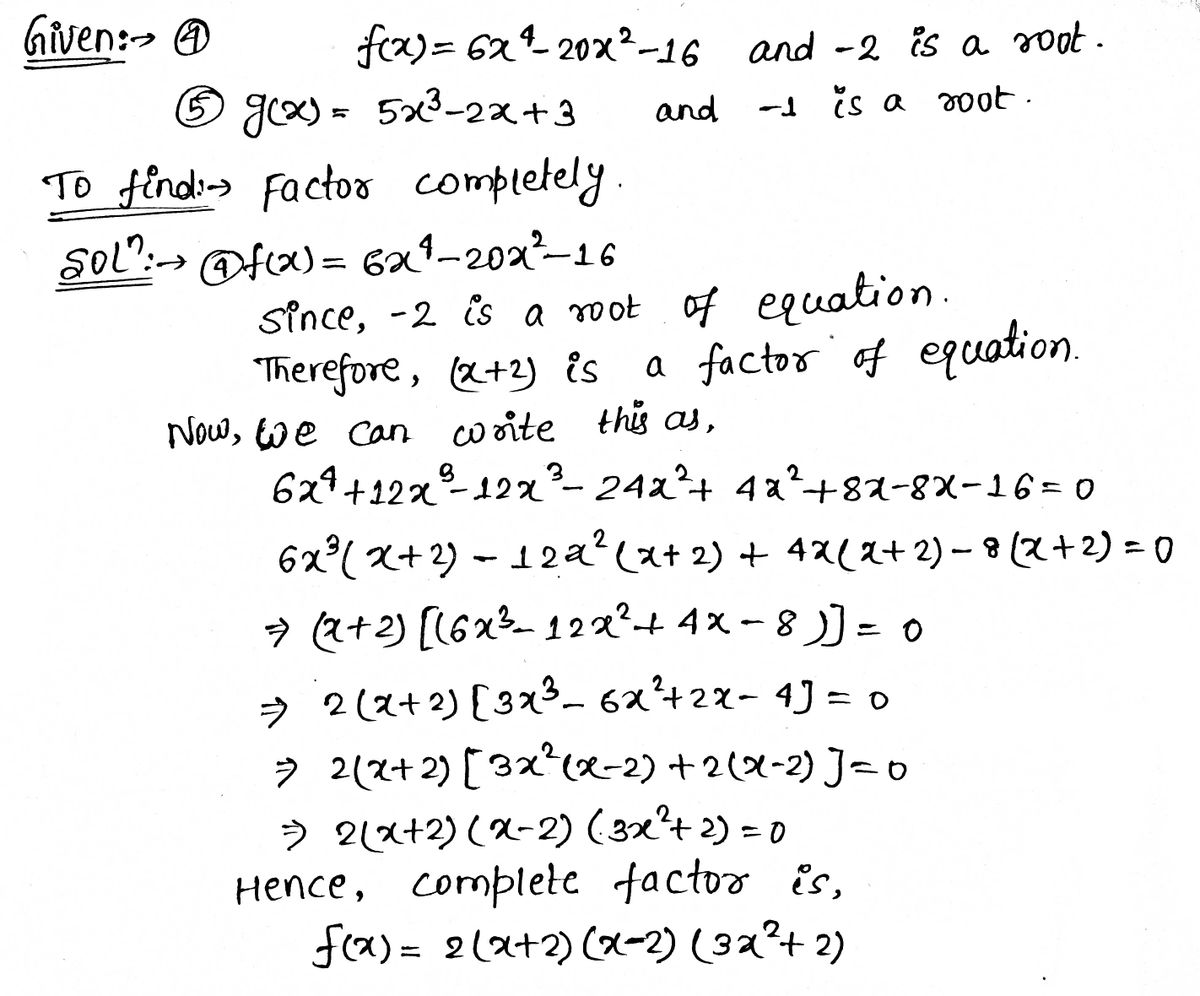 Given:→ ④ f(x) = 6x⁴-20x²-16 and -2 is a root.
⑤ g(x) = 5x³-2x+3 and -1 is a root.
To find:→ Factor completely.
Solⁿ:→ ④ f(x) = 6x⁴-20x²-16
Since, -2 is a root of equation.
Therefore, (x+2) is a factor of equation.
Now, we can write this as,
6x⁴+12x³-12x³-24x²+4x²+8x-8x-16=0
6x³(x+2)-12x²(x+2)+4x(x+2)-8(x+2)=0
⇒ (x+2)[(6x³-12x²+4x-8)]=0
⇒ 2(x+2)[3x³-6x²+2x-4]=0
⇒ 2(x+2)[3x²(x-2)+2(x-2)]=0
⇒ 2(x+2)(x-2)(3x²+2)=0
Hence, complete factor is,
f(x) = 2(x+2)(x-2)(3x²+2)